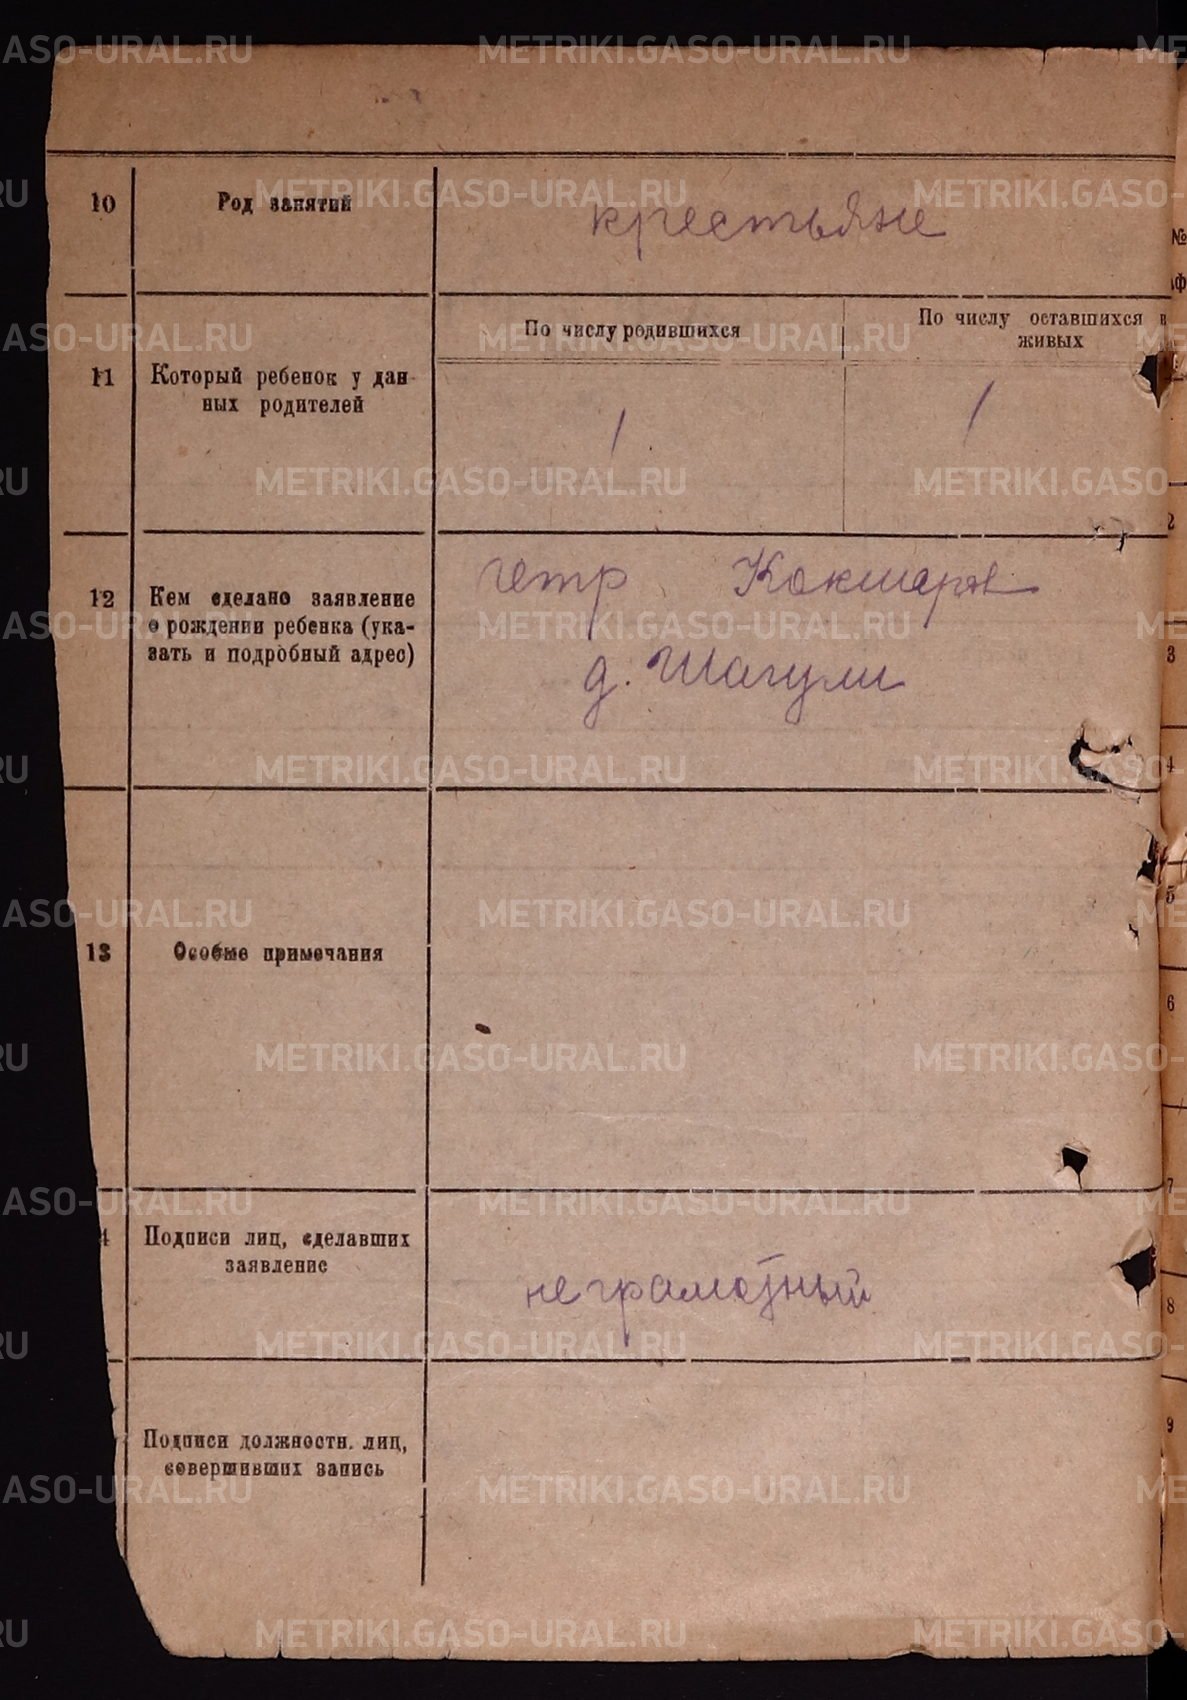 10 Род занятий крестьяне
11 Который ребенок у дан-
ных родителей
По числу родившихся
1
По числу оставшихся в
живых
1
12 Кем сделано заявление
о рождении ребенка (ука-
зать и подробный адрес)
петр Кокшаров
д. Шагули
13 Особые примечания
4 Подписи лиц, сделавших
заявление
неграмотный
Подписи должностн. лиц,
совершивших запись
№
2
3
4
5
6
7
8
9
METRIKI.GASO-URAL.RU